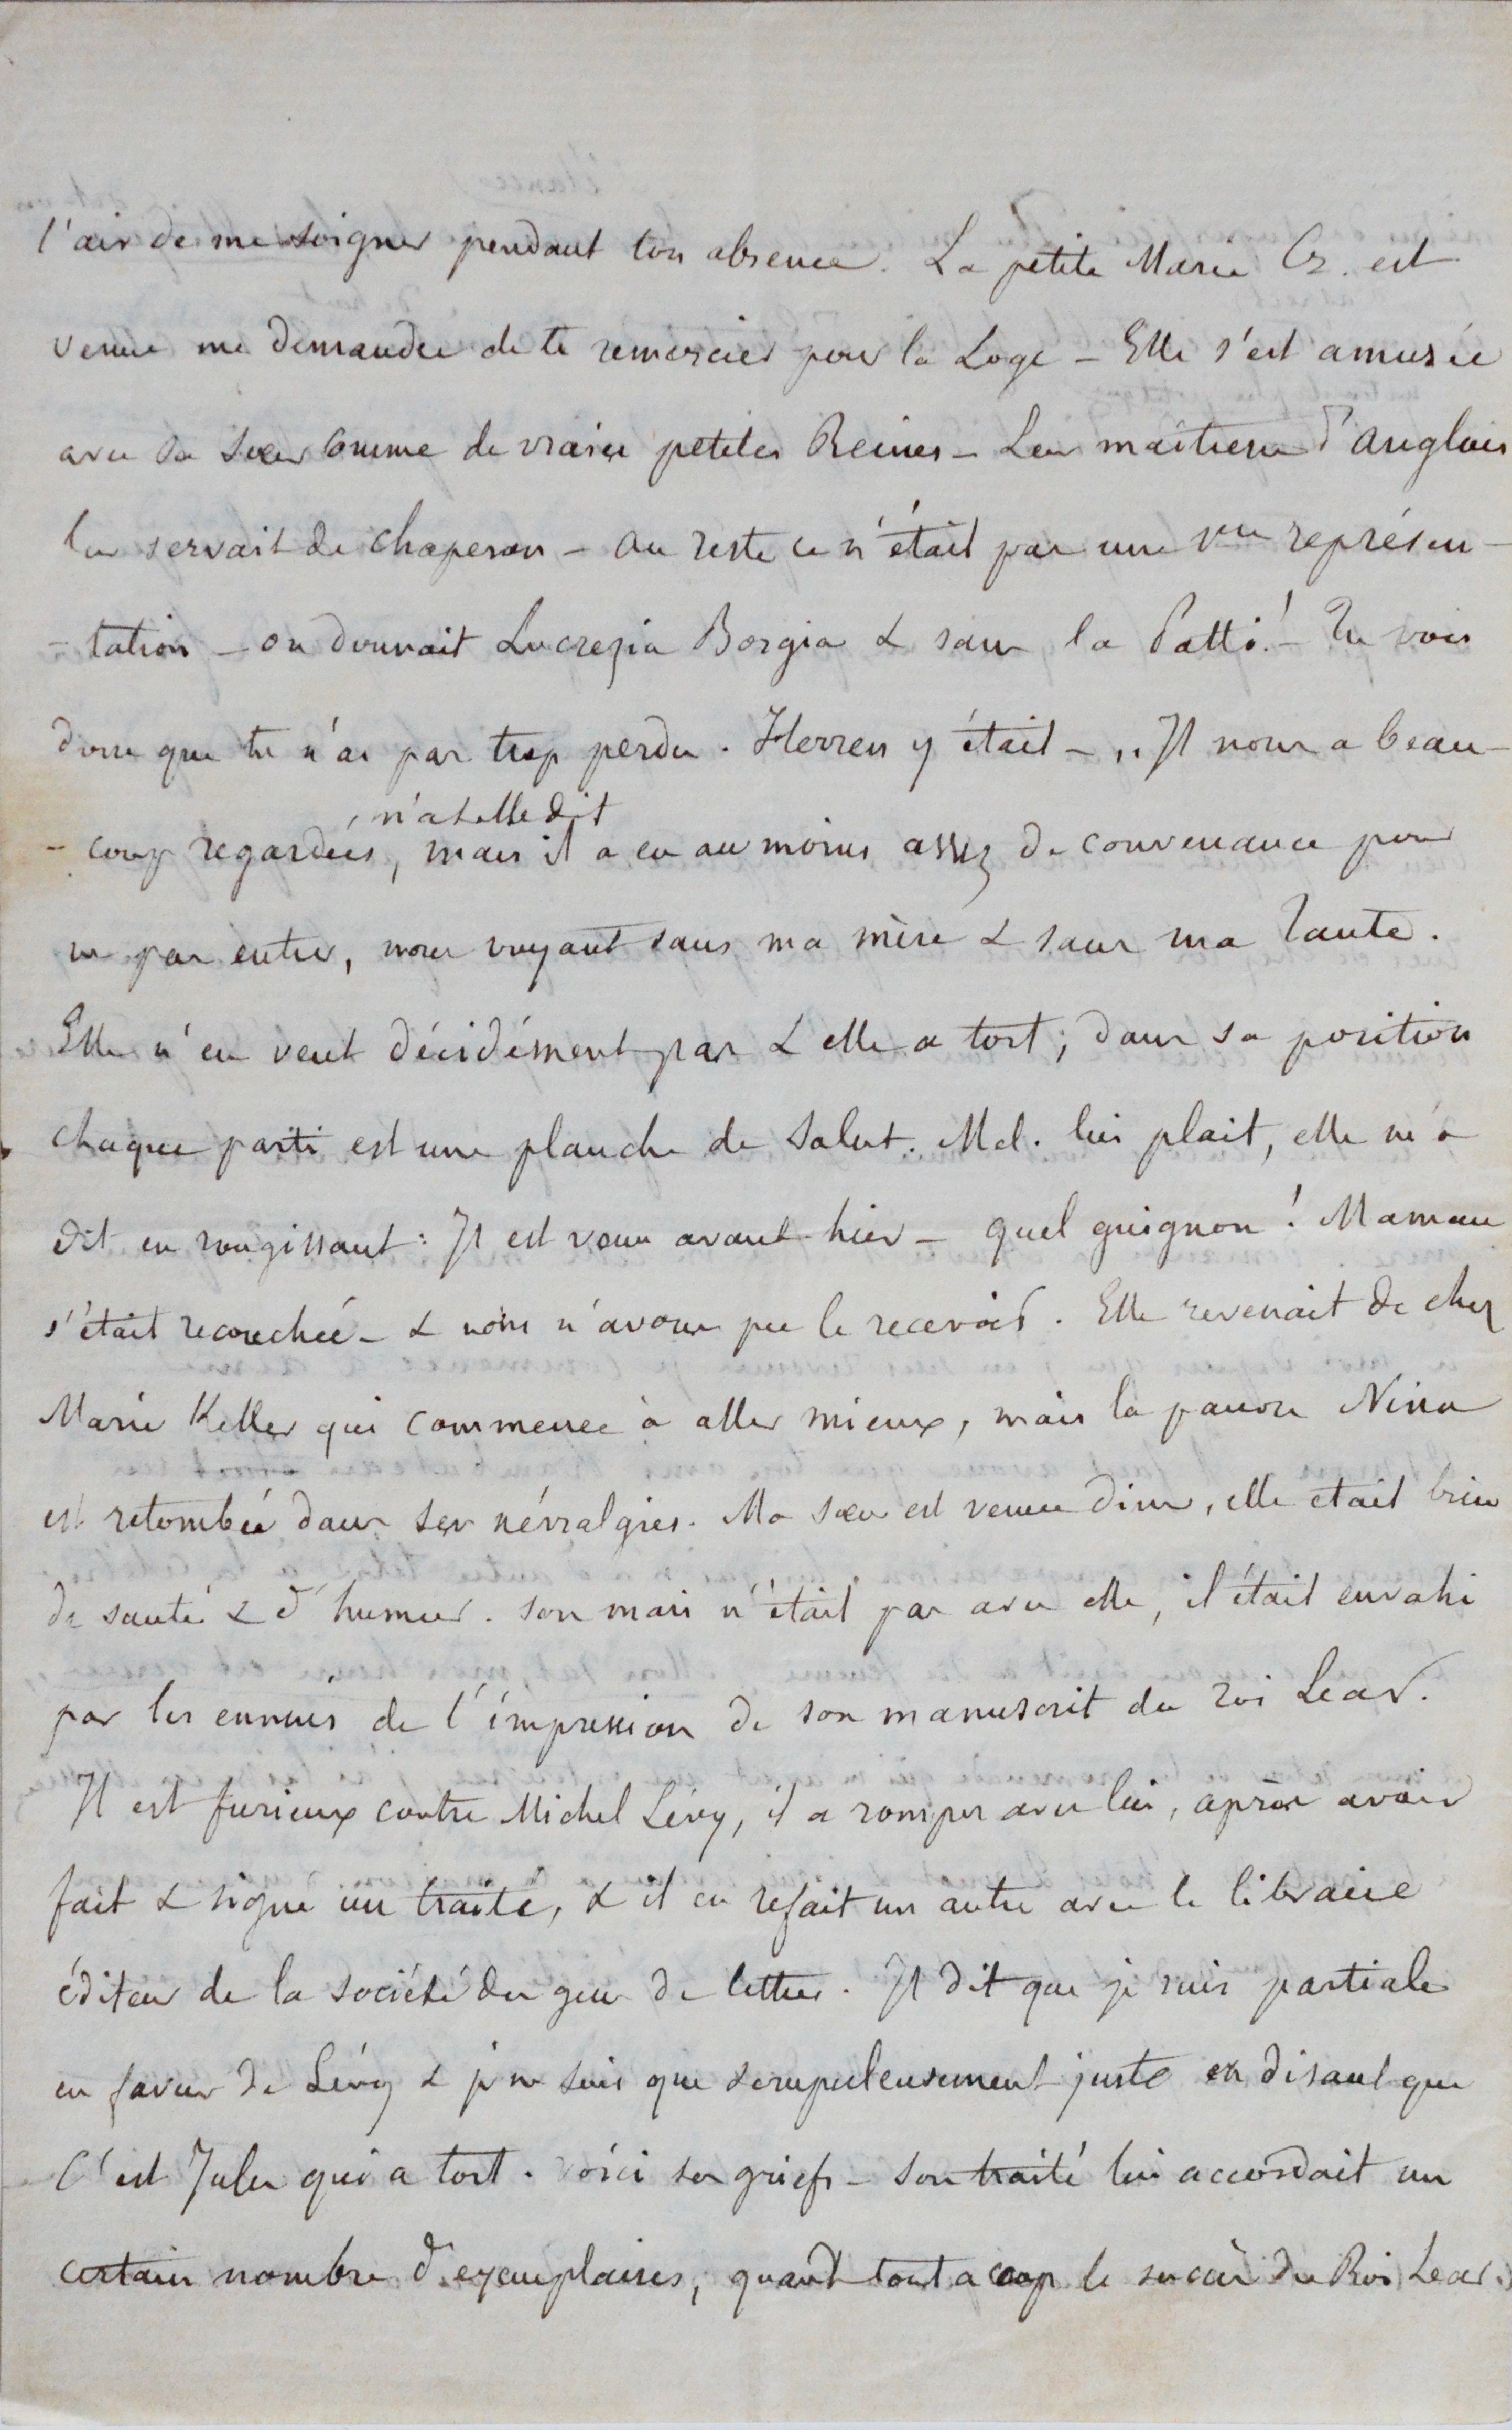 l'air de me soigner pendant ton absence. La petite Marie Cz. est
venue me demander de te remercier pour la Loge – Elle s'est amusée
avec sa sœur comme de vraies petites Reines – Leur maîtresse d'anglais
leur servait de chaperon – au reste ce n'était pas une vraie représen-
-tation – on donnait Lucrezia Borgia & sans la Patti! – Tu vois
donc que tu n'as pas trop perdu. Herren y était – „Il nous a beau-
, m'a t elle dit
-coup regardées, mais il a eu au moins assez de convenance pour
ne pas entrer, nous voyant sans ma mère & sans ma Tante.
Elle n'en veut décidément pas & elle a tort; dans sa position
chaque parti est une planche de salut. Mel. lui plait, elle m'a
dit en rougissant: Il est venu avant-hier – quel guignon! Maman
s'était recouchée – & nous n'avons pu le recevoir. Elle revenait de chez
Marie Keller qui commence à aller mieux, mais la pauvre Nina
est retombée dans ses névralgies. Ma sœur est venue diner, elle etait bien
de santé & d'humeur. son mari n'était pas avec elle, il était envahi
par les ennuis de l'impression de son manuscrit du roi Lear.
Il est furieux contre Michel Lévy, il a rompu avec lui, après avoir
fait & signé un traité, & il en refait un autre avec le libraire
éditeur de la société des gens de lettres. Il dit que je suis partiale
en faveur de Lévy & je ne suis que scrupuleusement juste en disant que
C'est Jules qui a tort. voici ses griefs – son traité lui accordait un
certain nombre d'exemplaires, quand tout a coup le succès du Roi Lear